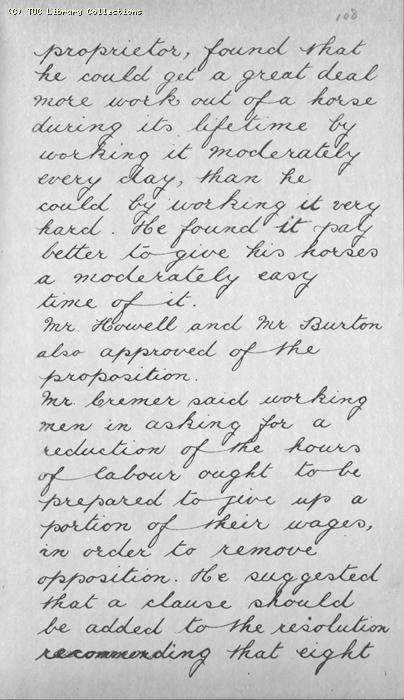 (C) TUC Library Collections
108
proprietor, found that
he could get a great deal
more work out of a horse
during its lifetime by
working it moderately
every day, than he
could by working it very
hard. He found it pay
better to give his horses
a moderately easy
time of it.
Mr. Howell and Mr Burton
also approved of the
proposition.
Mr. Cremer said working
men in asking for a
reduction of the hours
of labour ought to be
prepared to give up a
portion of their wages,
in order to remove
opposition. He suggested
that a clause should
be added to the resolution
recommending that eight